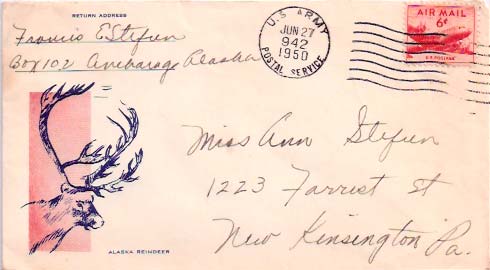 RETURN ADDRESS
Francis E. Stefun
Box 102 Anchorage Alaska
U.S. ARMY
JUN 27
942
1950
POSTAL SERVICE
AIR MAIL
6¢
U.S. POSTAGE
Miss Ann Stefun
1223 Forrest St
New Kensington Pa.
ALASKA REINDEER